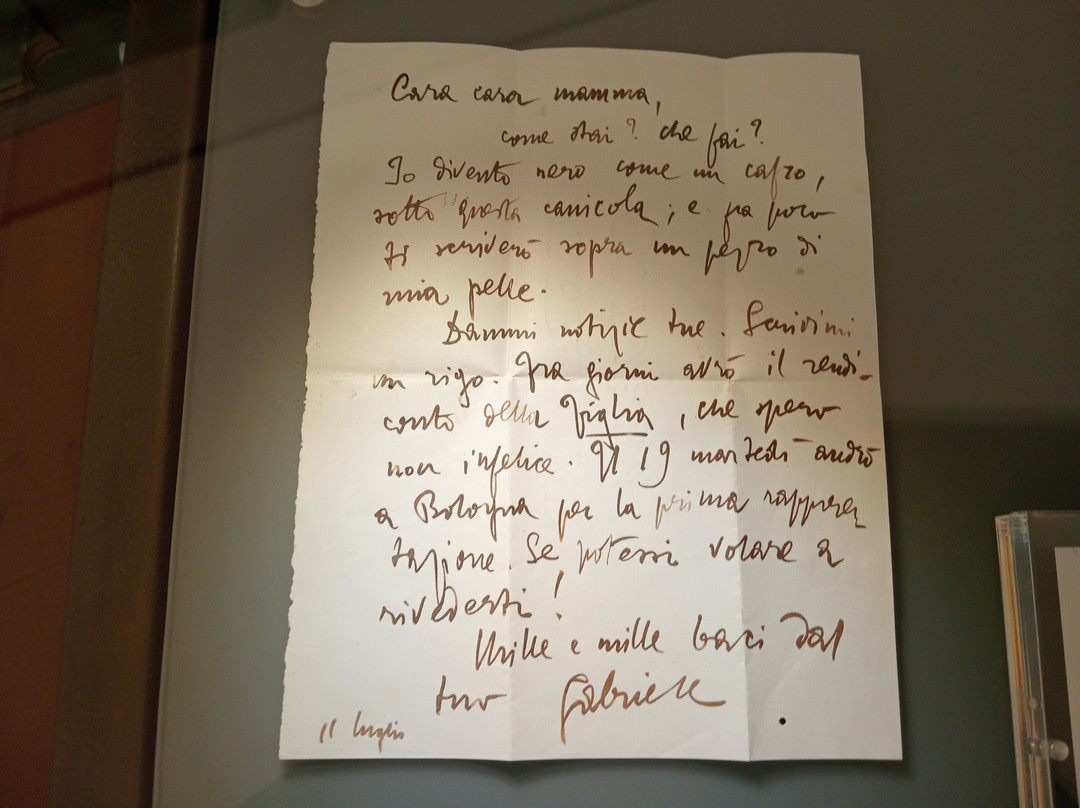 Cara cara mamma,
come stai? che fai?
Io divento nero come un cafro,
sotto questa canicola; e fra poco
ti scriverò sopra un pezzo di
mia pelle.
Dammi notizie tue. Scrivimi
un rigo. Fra giorni avrò il rendi-
conto della Figlia, che spero
non infelice. Il 19 martedì andrò
a Bologna per la prima rappresen
tazione. Se potessi volare a
rivederti!
Mille e mille baci dal
tuo Gabriele
11 luglio